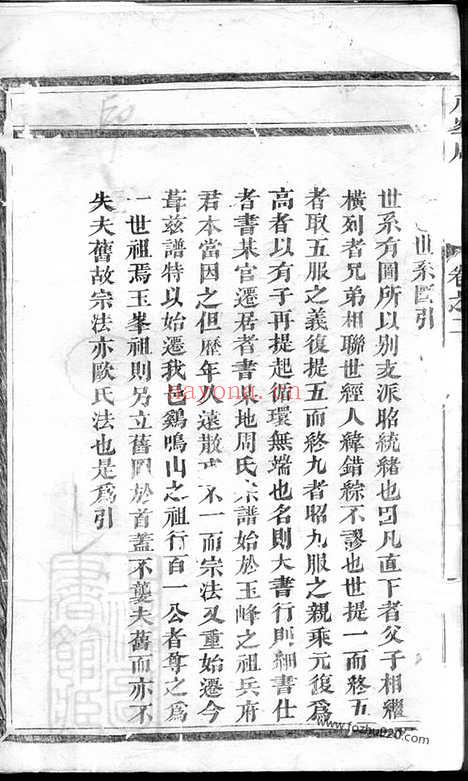 世系圖引
世系有圖所以別支派昭統緒也曰凡直下者父子相繼
橫列者兄弟相聯世經人緯錯綜不謬也世提一而終五
者取五服之義復提五而終九者昭九服之親乘元復爲
高者以有子再提起循環無端也名則大書行則細書仕
者書某官遷居者書某地周氏宗譜始於玉峰之祖兵府
君本當因之但歷年久遠散 不一而宗法又重始遷今
葺兹譜特以始遷我邑鷄鳴山之祖行百一公者尊之爲
一世祖焉玉峯祖則另立舊圖於首蓋不襲夫舊而亦不
失夫舊故宗法亦歐氏法也是爲引
卷之二
nayong.cn
www.fozhu920.com